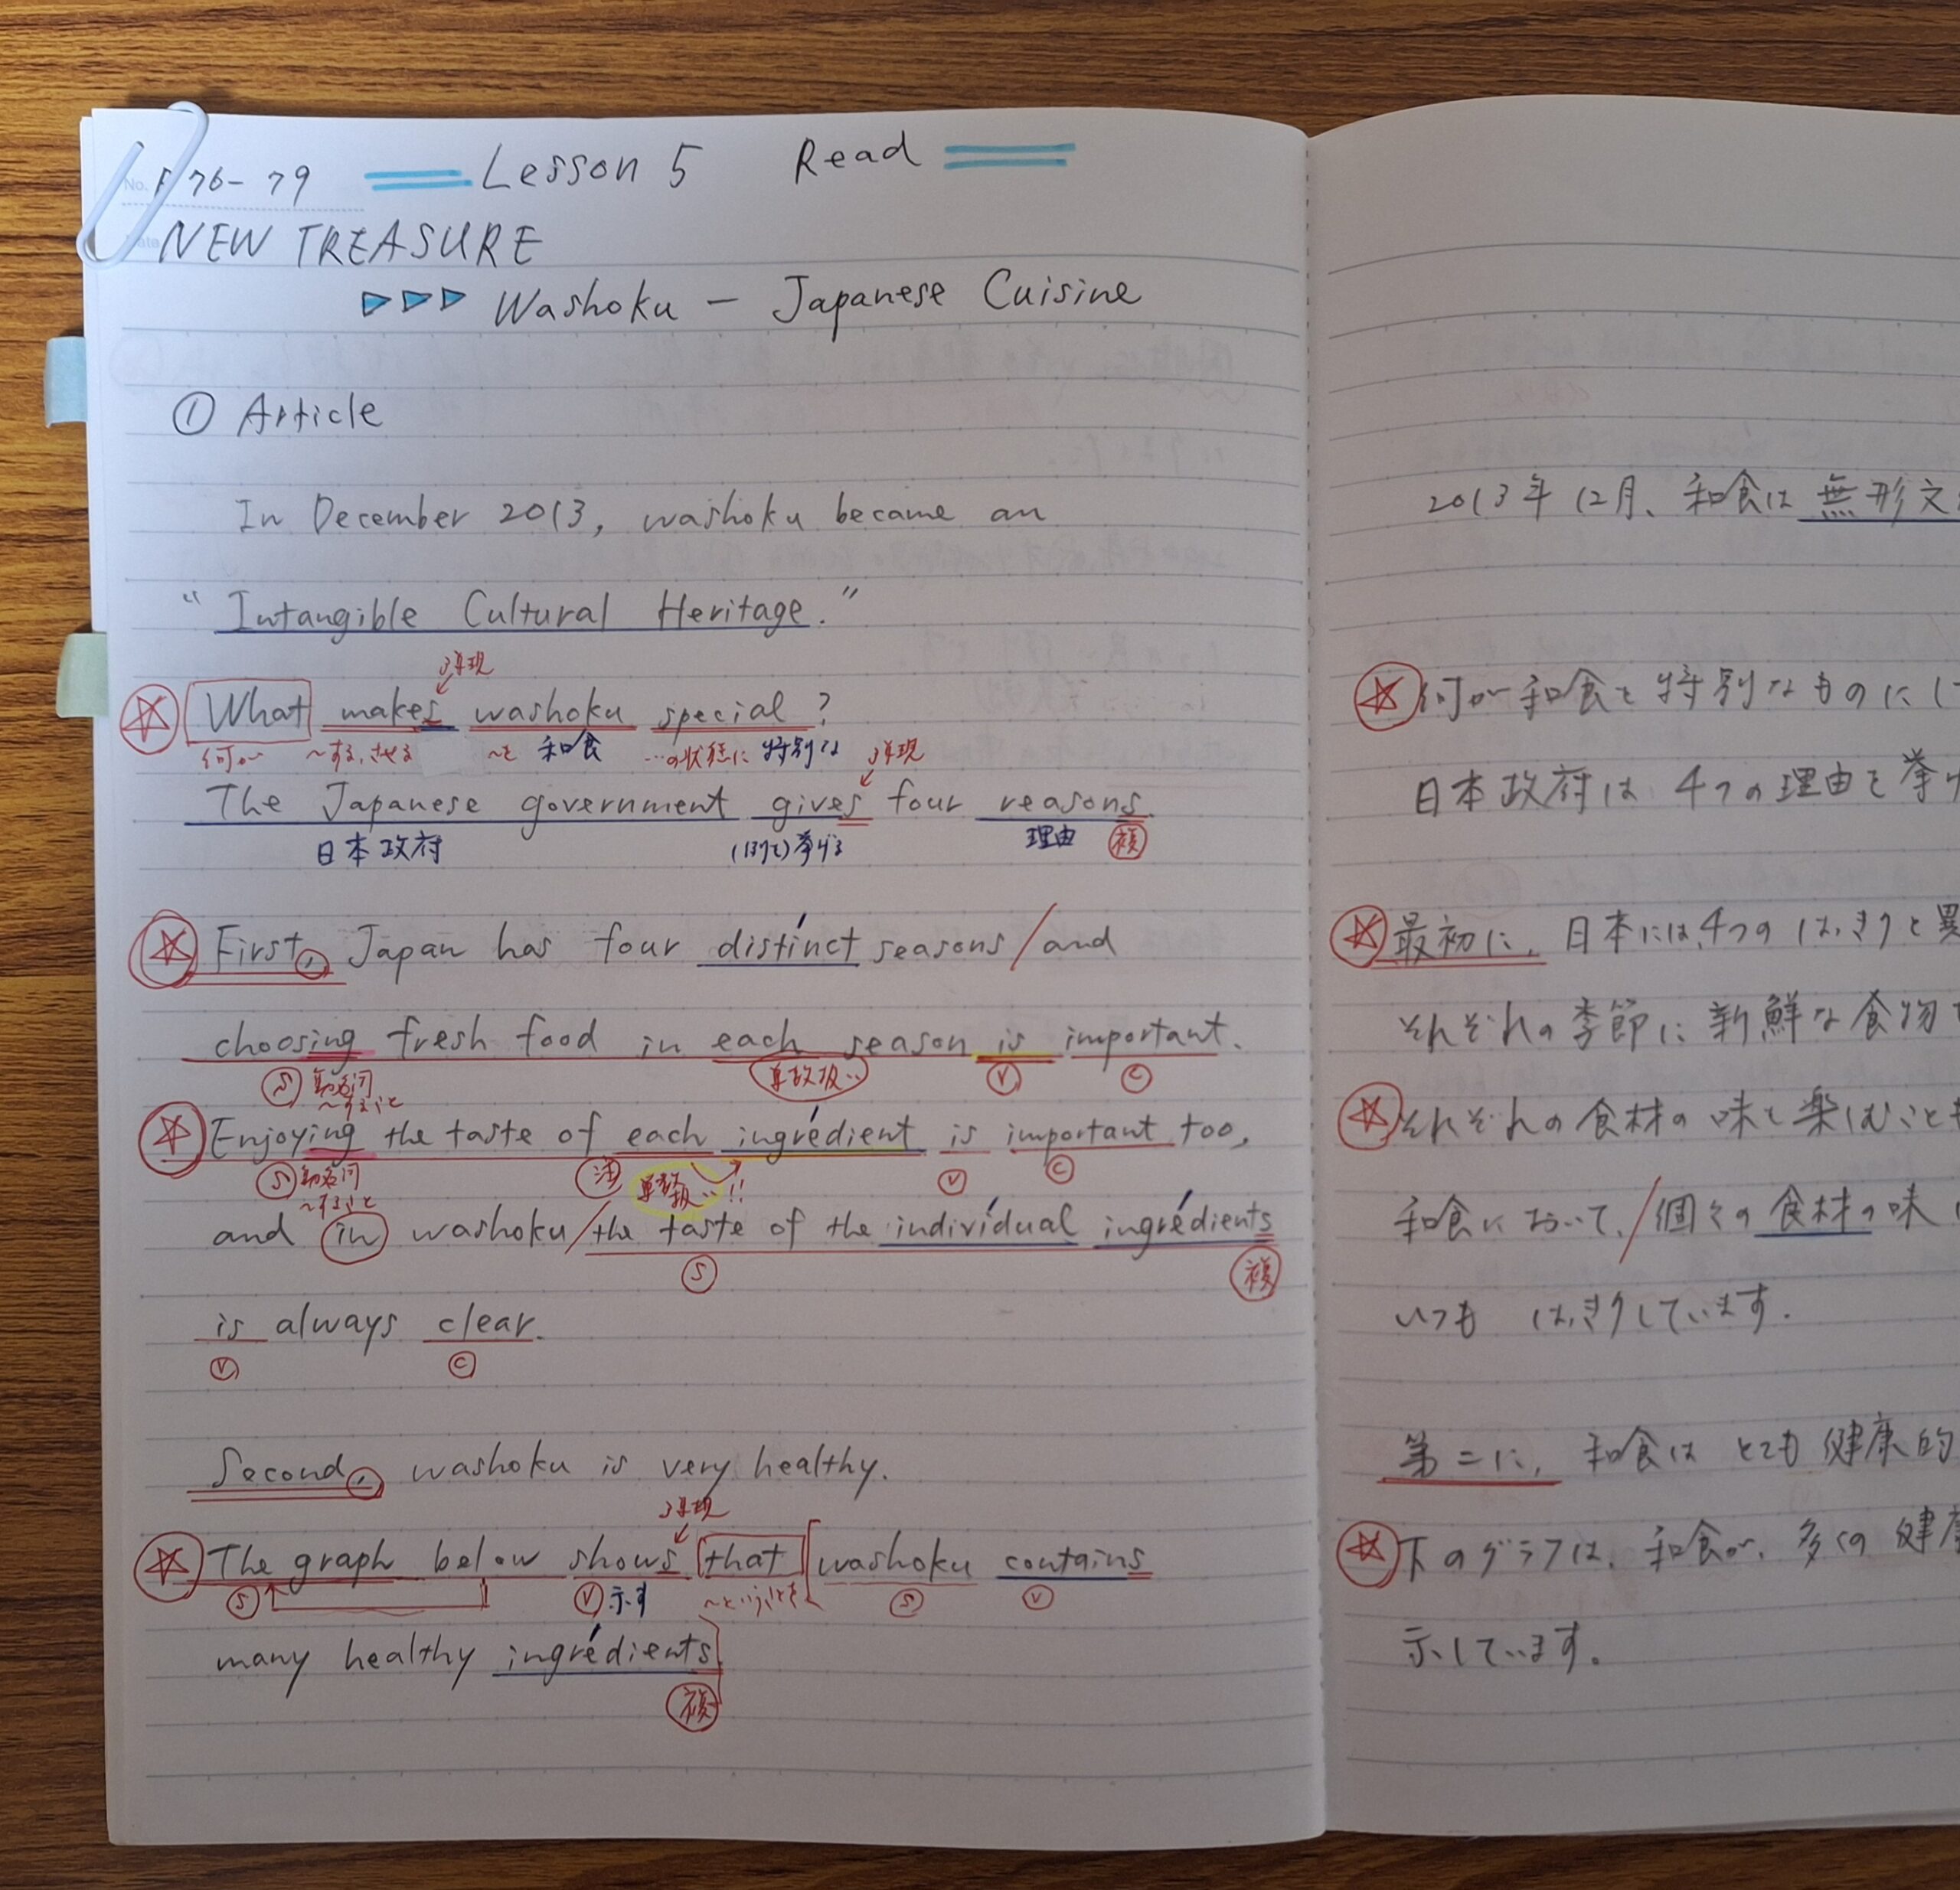 No. P 76-79 Lesson 5 Read
Date NEW TREASURE
Washoku - Japanese Cuisine
① Article
In December 2013, washoku became an
"Intangible Cultural Heritage."
3単現
What makes washoku special?
何が ~する,させる ~を 和食 …の状態に 特別な 3単現
The Japanese government gives four reasons.
日本政府 (例を)挙げる 理由 複
First, Japan has four distinct seasons / and
choosing fresh food in each season is important.
S 動名詞 単数扱い V C
~すること
Enjoying the taste of each ingredient is important too,
S 動名詞 注 単数扱い!! V C
~すること
and in washoku / the taste of the individual ingredients
S 複
is always clear.
V C
Second, washoku is very healthy.
3単現
The graph below shows that washoku contains
S V 示す ~ということを S V
many healthy ingredients
複
2013年12月、和食は無形文
何が和食を特別なものにし
日本政府は4つの理由を挙げ
最初に、日本には、4つのはっきりと異
それぞれの季節に新鮮な食物を
それぞれの食材の味を楽しむことも
和食において、/個々の食材の味
いつも はっきりしています.
第二に、和食はとても健康的
下のグラフは、和食が、多くの健康
示しています。